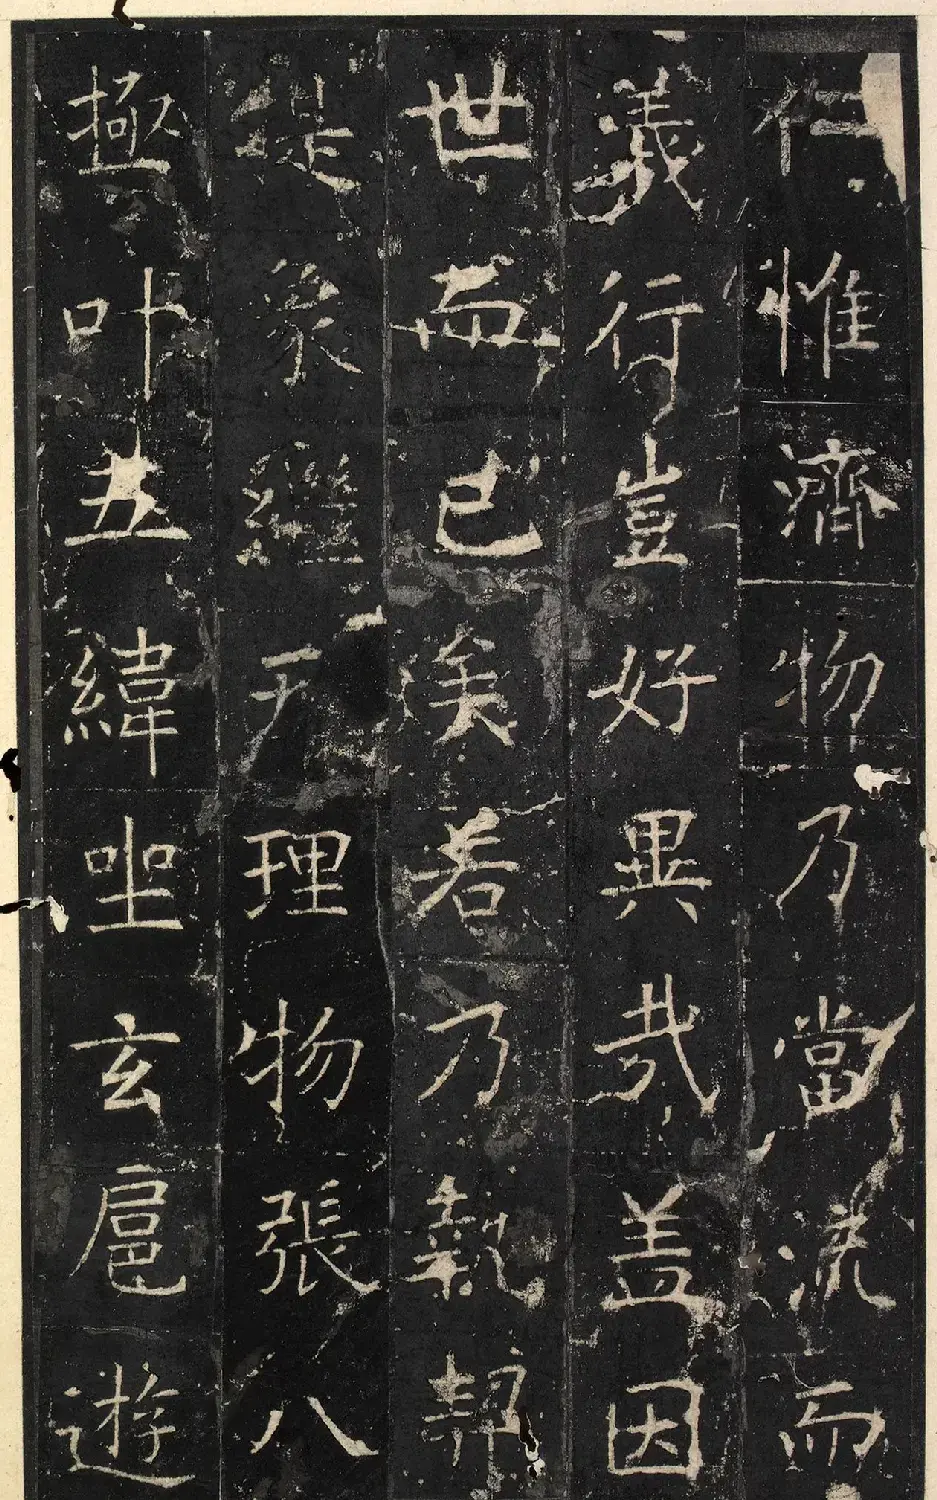 仁惟濟物乃當流而
義行豈好異哉盖因
世而已矣若乃執契
提象繼天理物張八
極叶五緯坐玄扈遊